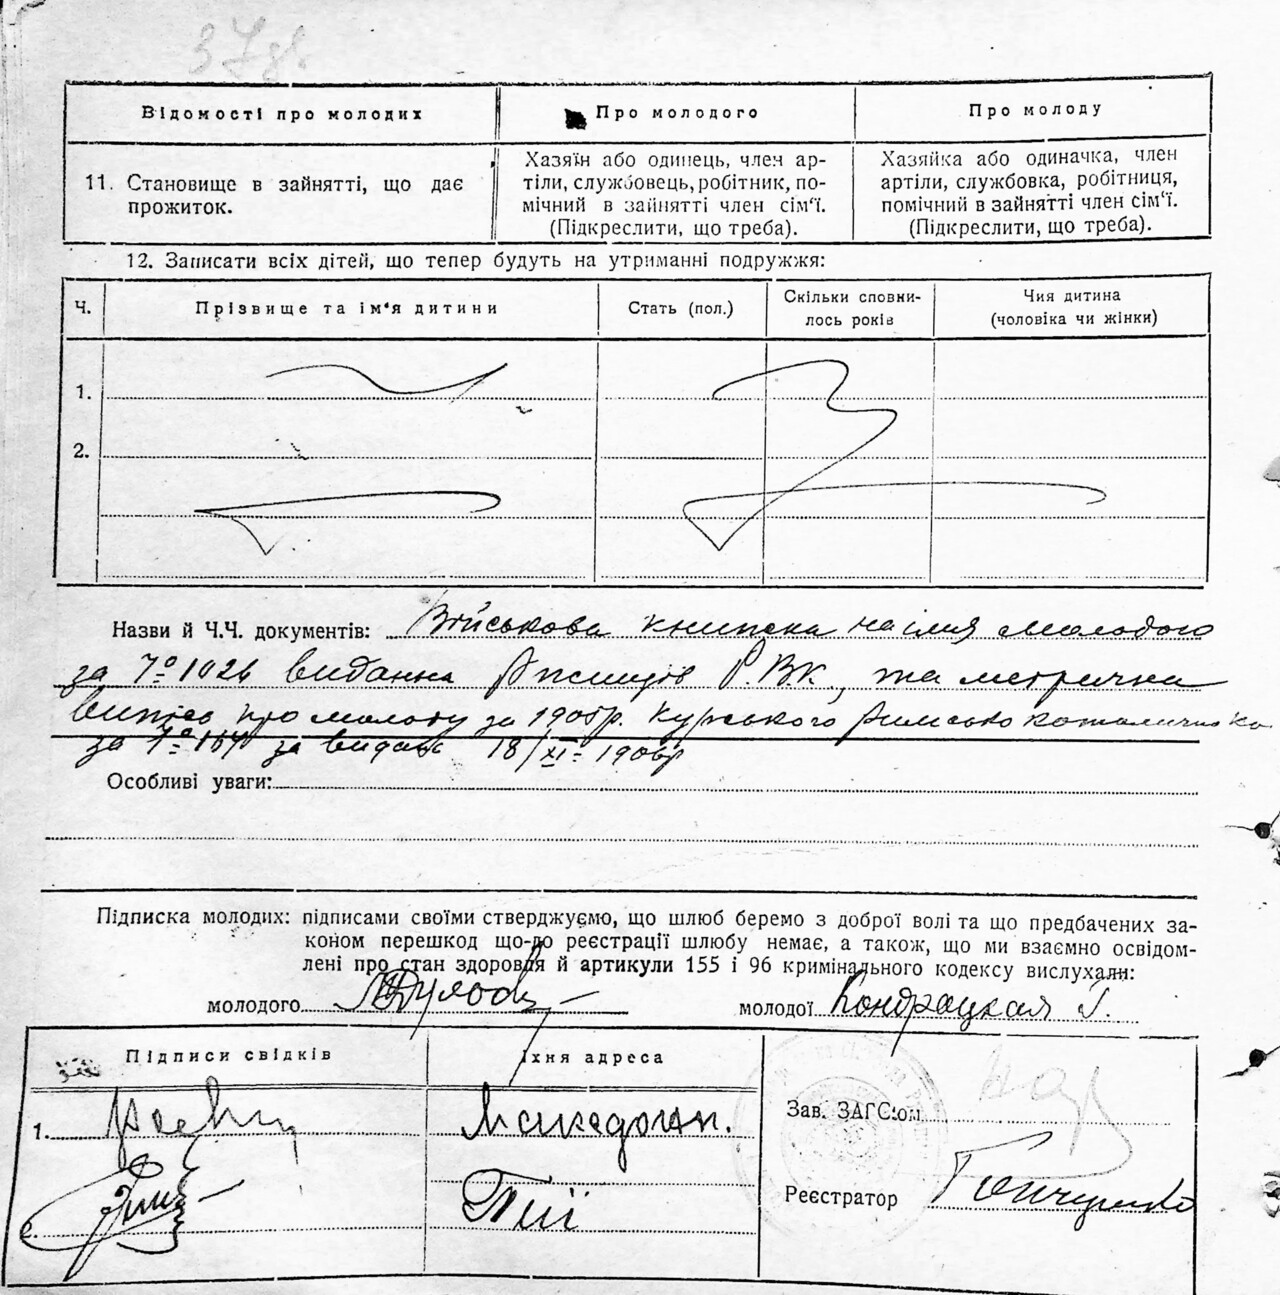 37
Відомості про молодих
Про молодого
Про молоду
11. Становище в зайнятті, що дає
прожиток.
Хазяїн або одинець, член ар-
тіли, службовець, робітник, по-
мічний в зайнятті член сім'ї.
(Підкреслити, що треба).
Хазяйка або одиначка, член
артіли, службовка, робітниця,
помічний в зайнятті член сім'ї.
(Підкреслити, що треба).
12. Записати всіх дітей, що тепер будуть на утриманні подружжя:
Ч.
Прізвище та ім'я дитини
Стать (пол.)
Скільки сповни-
лось років
Чия дитина
(чоловіка чи жінки)
1.
2.
Назви й Ч.Ч. документів: Військова книжка на імя молодого
за № 1026 видання Р.В.К., та метрична
випись про молоду за 1906р. Курського римсько
за № 164 за видане 18/XI- 1906р
Особливі уваги:
Підписка молодих: підписами своїми стверджуємо, що шлюб беремо з доброї волі та що предбачених за-
коном перешкод що-до реєстрації шлюбу немає, а також, що ми взаємно освідом-
лені про стан здоровля й артикули 155 і 96 кримінального кодексу вислухали:
молодого
молодої Кондрацкая Г.
Підписи свідків
їхня адреса
1.
Македон.
Зав. ЗАГС'ом
Реєстратор Гончаренко